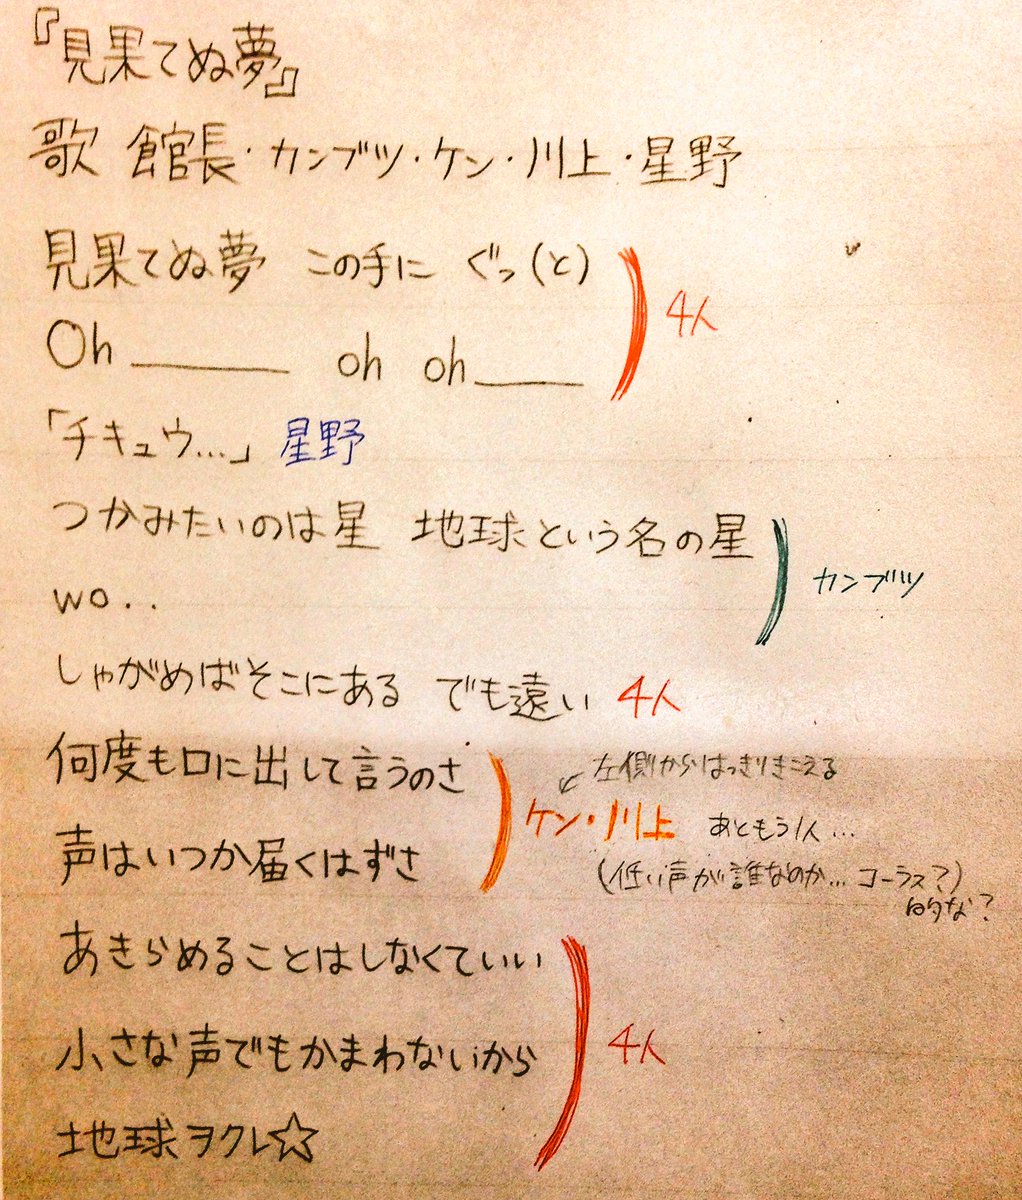 『見果てぬ夢』
歌 館長・カンブツ・ケン・川上・星野
見果てぬ夢 この手に ぐっ(と)
4人
Oh ______ oh oh____
「チキュウ…」 星野
つかみたいのは星 地球という名の星
カンブツ
wo..
しゃがめばそこにある でも遠い 4人
何度も口に出して言うのさ
左側からはっきりきこえる
ケン・川上 あともう1人…
声はいつか届くはずさ
(低い声が誰なのか… コーラス?)
的な?
あきらめることはしなくていい
小さな声でもかまわないから
4人
地球ヲクレ☆